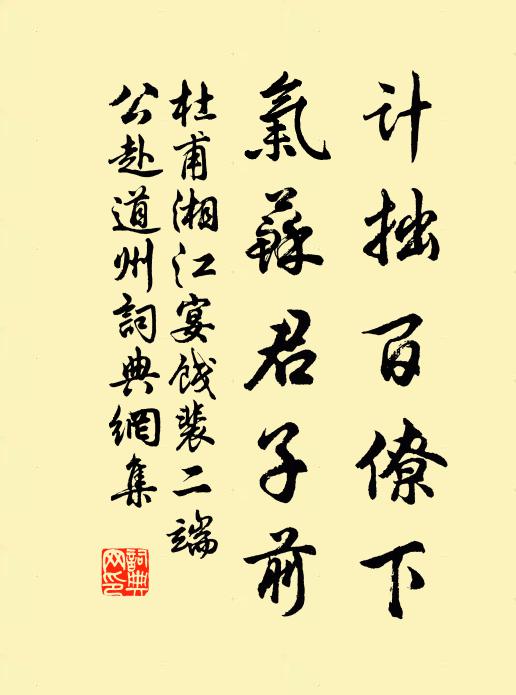 計拙百僚下
氣蘇君子前
杜甫湘江宴餞裴二端
公赴道州詞典網集
詞典
网印